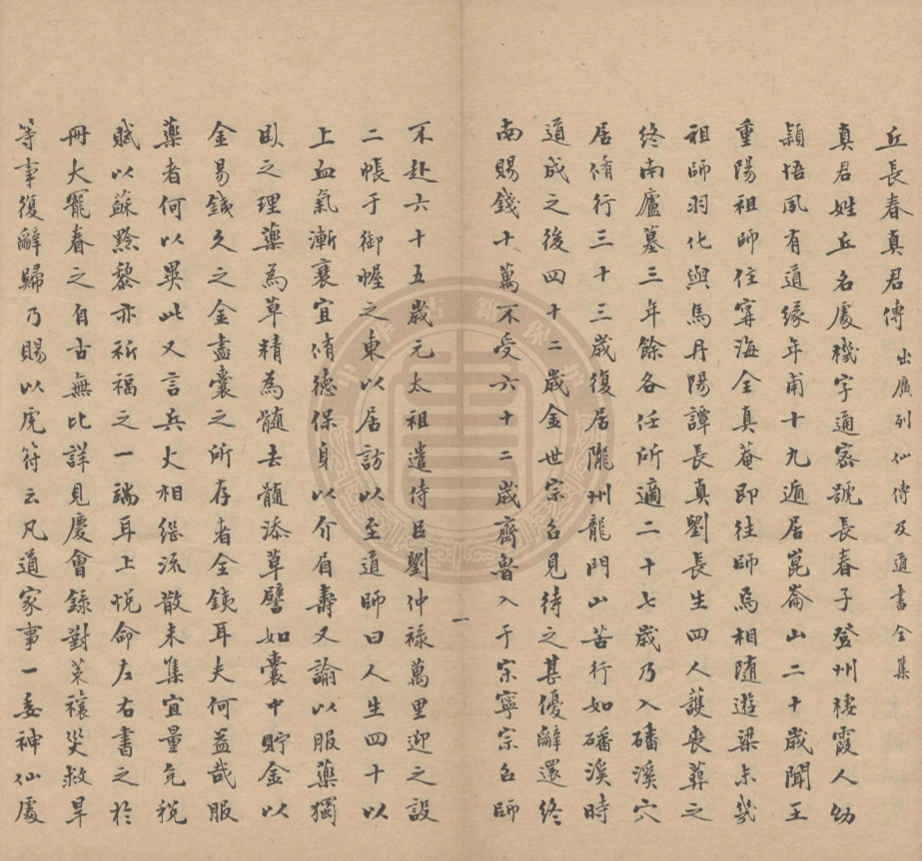 丘長春真君傳 出廣列仙傳及道書全集
真君姓丘名處機字通密號長春子登州棲霞人幼
穎悟夙有道緣年甫十九遁居崑崙山二十歲聞王
重陽祖師住寧海全真菴即往師焉相隨遊梁未幾
祖師羽化與馬丹陽譚長真劉長生四人護喪葬之
終南廬墓三年餘各任所適二十七歲乃入磻溪穴
居脩行三十三歲復居隴州龍門山苦行如磻溪時
道成之後四十二歲金世宗召見待之甚優辭還終
南賜錢十萬不受六十二歲齊魯入于宋寧宗召師
不赴六十五歲元太祖遣侍臣劉仲祿萬里迎之設
二帳于御幄之東以居訪以至道師曰人生四十以
上血氣漸衰宜脩德保身以介眉壽又諭以服藥獨
臥之理藥為草精為髓去髓添草譬如囊中貯金以
金易鐵久之金盡囊之所存者全鐵耳夫何益哉服
藥者何以異此又言兵火相繼流散未集宜量免稅
賦以蘇黔黎亦祈福之一端耳上悅命左右書之於
冊大寵眷之自古無比詳見慶會錄對策禳災救旱
等事復辭歸乃賜以虎符云凡道家事一委神仙處
一